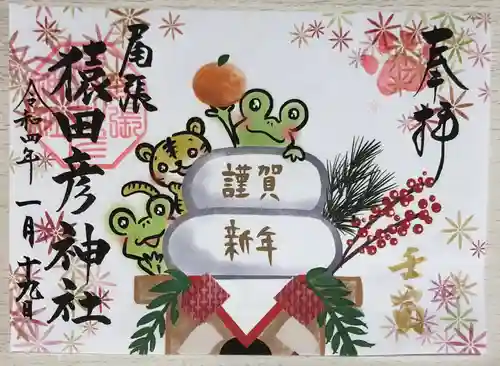 奉拝
壬寅
謹賀
新年
尾張
猿田彦神社
令和四年 一月十九日